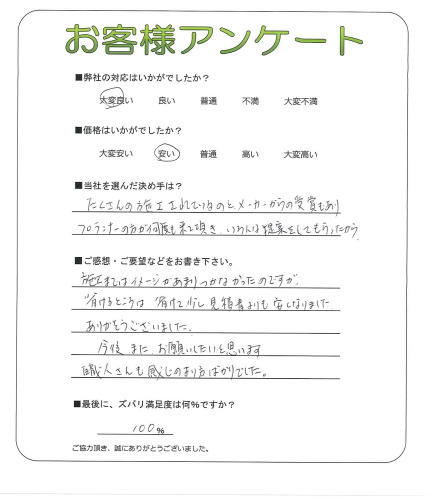 お客様アンケート
■弊社の対応はいかがでしたか？
大変良い 良い 普通 不満 大変不満
■価格はいかがでしたか？
大変安い 安い 普通 高い 大変高い
■当社を選んだ決め手は？
たくさんの施工されているのと、メーカーからの受賞もあり
プランナーの方が何度も来て頂き、いろんな提案をしてもらったから
■ご感想・ご要望などをお書き下さい。
施工まではイメージがあまりつかなかったのですが、
省けるところは省けて少し見積書よりも安くなりました。
ありがとうございました。
今後、また、お願いしたいと思います
職人さんも感じのよい方ばかりでした。
■最後に、ズバリ満足度は何%ですか？
100%
ご協力頂き、誠にありがとうございました。